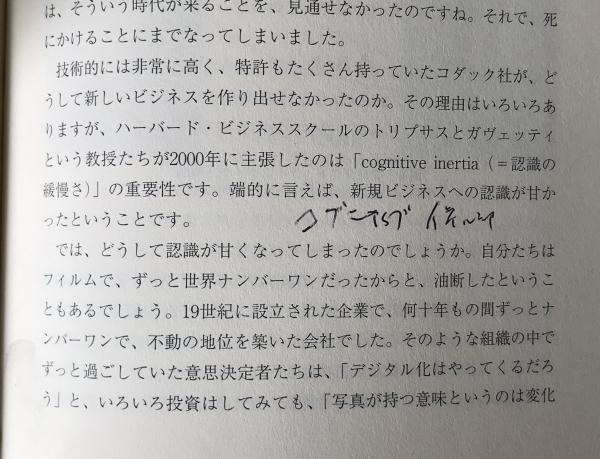 は、そういう時代が来ることを、見通せなかったのですね。それで、死
にかけることにまでなってしまいました。
技術的には非常に高く、特許もたくさん持っていたコダック社が、ど
うして新しいビジネスを作り出せなかったのか。その理由はいろいろあ
りますが、ハーバード・ビジネススクールのトリプサスとガヴェッティ
という教授たちが2000年に主張したのは「cognitive inertia（＝認識の
緩慢さ）」の重要性です。端的に言えば、新規ビジネスへの認識が甘か
ったということです。
コグニティブ
では、どうして認識が甘くなってしまったのでしょうか。自分たちは
フィルムで、ずっと世界ナンバーワンだったからと、油断したというこ
ともあるでしょう。19世紀に設立された企業で、何十年もの間ずっとナ
ンバーワンで、不動の地位を築いた会社でした。そのような組織の中で
ずっと過ごしていた意思決定者たちは、「デジタル化はやってくるだろ
う」と、いろいろ投資はしてみても、「写真が持つ意味というのは変化